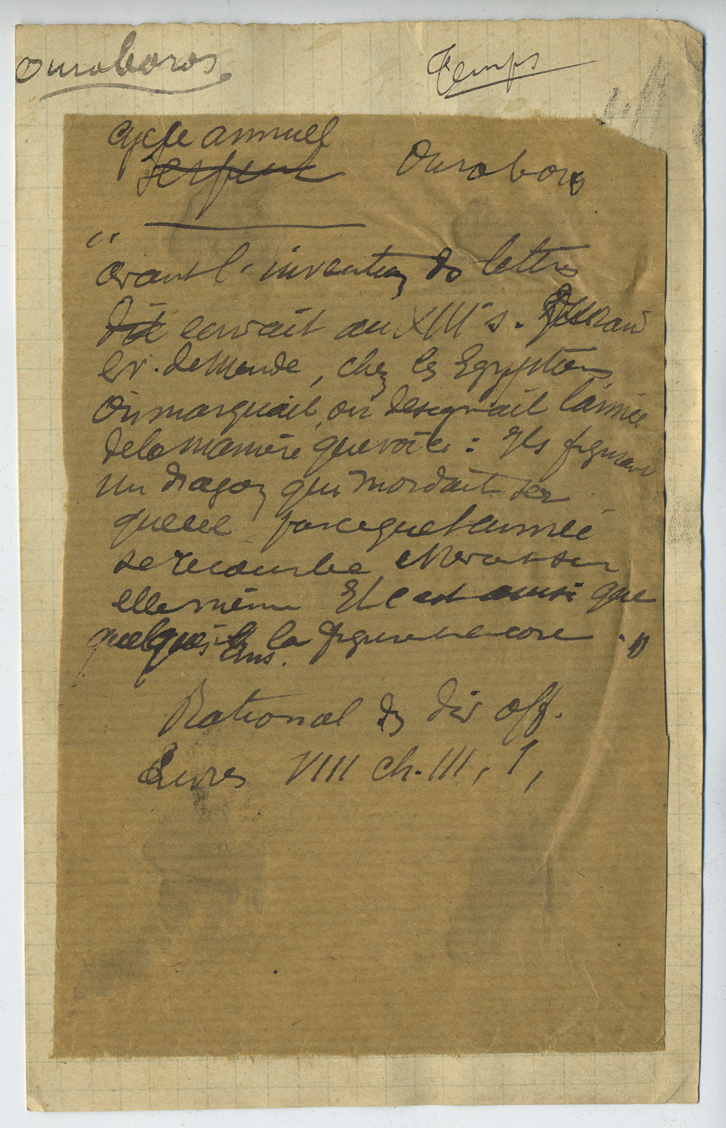 Ouroboros
Temps
cycle annuel
Serpent Ouroboros
"avant l'invention des lettres
dit ecrivait au XIIIe s. Durand
ev. de Mende, chez les Egyptiens
on marquait, on designait l'année
de la manière que voici : Ils figuraient
un dragon qui mordait sa
queue parceque l'année
se recourbe
elle même Et c'est ainsi que
quelques uns. la figure encore . "
Rational des div off.
Livres VIII ch. III, 1,